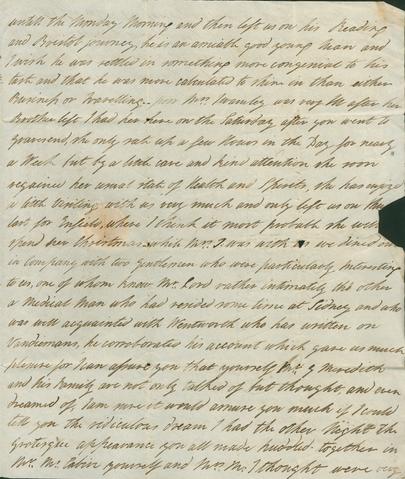 untill the Monday Morning and then left us on his Reading
and Bristol journey, he is an amiable good young Man and
I wish he was settled in something more congenial to his
taste and that he was more calculated to shine in than either
Business or Travelling. poor Mrs. was very ill after her
Brother left I had her here on the Saturday after you went to
Gravesend, she only sat up a few Hours in the Day for nearly
a Week but by a little care and kind attention she soon
regained her usual state of Health and Spirits, she has enjoyd
a little Visiting with us very much and only left us on the
last for Enfield, where I think it most probable she will
spend her Christmas. while Mrs. was with us we dined out
in company with two Gentlemen who were particularly Interesting
to us, one of whom knew Mr. Lord rather intimately, the other
a Medical Man who had resided some time at Sidney and who
was well acquainted with Wentworth who has written on
Vandiemans, he corroborated his account which gave us much
pleasure for I can assure you that yourself Mr. G Meredith
and his Family are not only talked of but thought, and even
dreamed of, I am sure it would amuse you much if I could
tell you the ridiculous dream I had the other Night the
grotesque appearance you all made huddled together in
Mr. M. Cabin yourself and Mrs. M. I thought were very